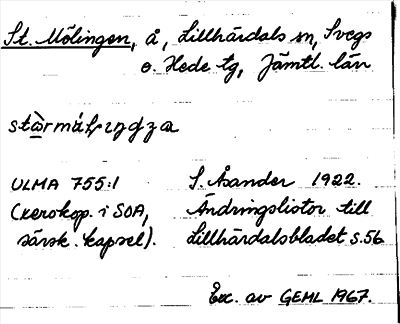 St. Mölingen, å, Lillhärdals sn, Svegs
o. Hede tg, Jämtl. län
ULMA 755:1
(xerokop. i SOA,
särsk. kapsel).
S. Åsander 1922.
Ändringslistor till
Lillhärdalsbladet s. 56
Exc. av GEHL 1967.